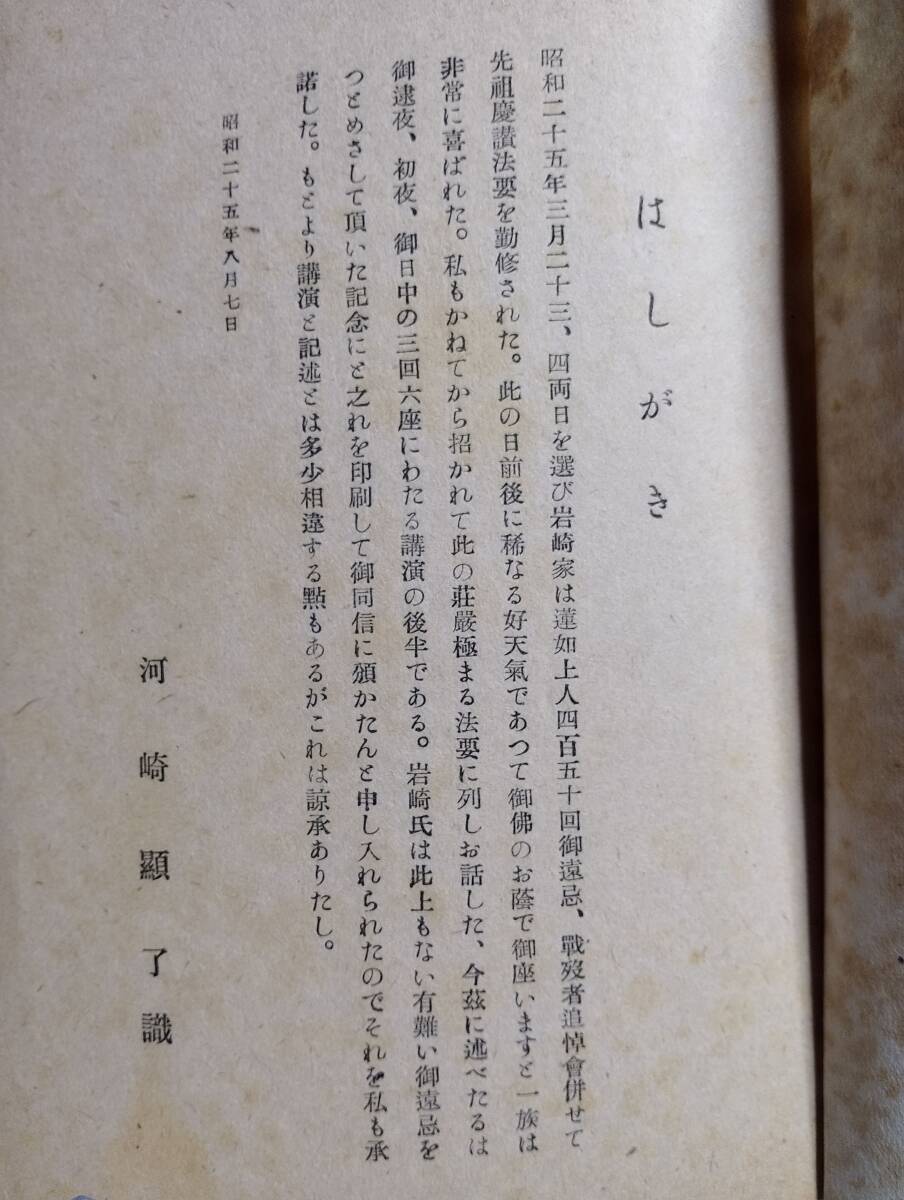 はしがき
昭和二十五年三月二十三、四両日を選び岩崎家は蓮如上人四百五十回御遠忌、戰歿者追悼會併せて
先祖慶讃法要を勤修された。此の日前後に稀なる好天氣であつて御佛のお蔭で御座いますと一族は
非常に喜ばれた。私もかねてから招かれて此の莊嚴極まる法要に列しお話した、今茲に述べたるは
御逮夜、初夜、御日中の三回六座にわたる講演の後半である。岩崎氏は此上もない有難い御遠忌を
つとめさして頂いた記念にと之れを印刷して御同信に頒かたんと申し入れられたのでそれを私も承
諾した。もとより講演と記述とは多少相違する點もあるがこれは諒承ありたし。
昭和二十五年八月七日
河崎顯了識